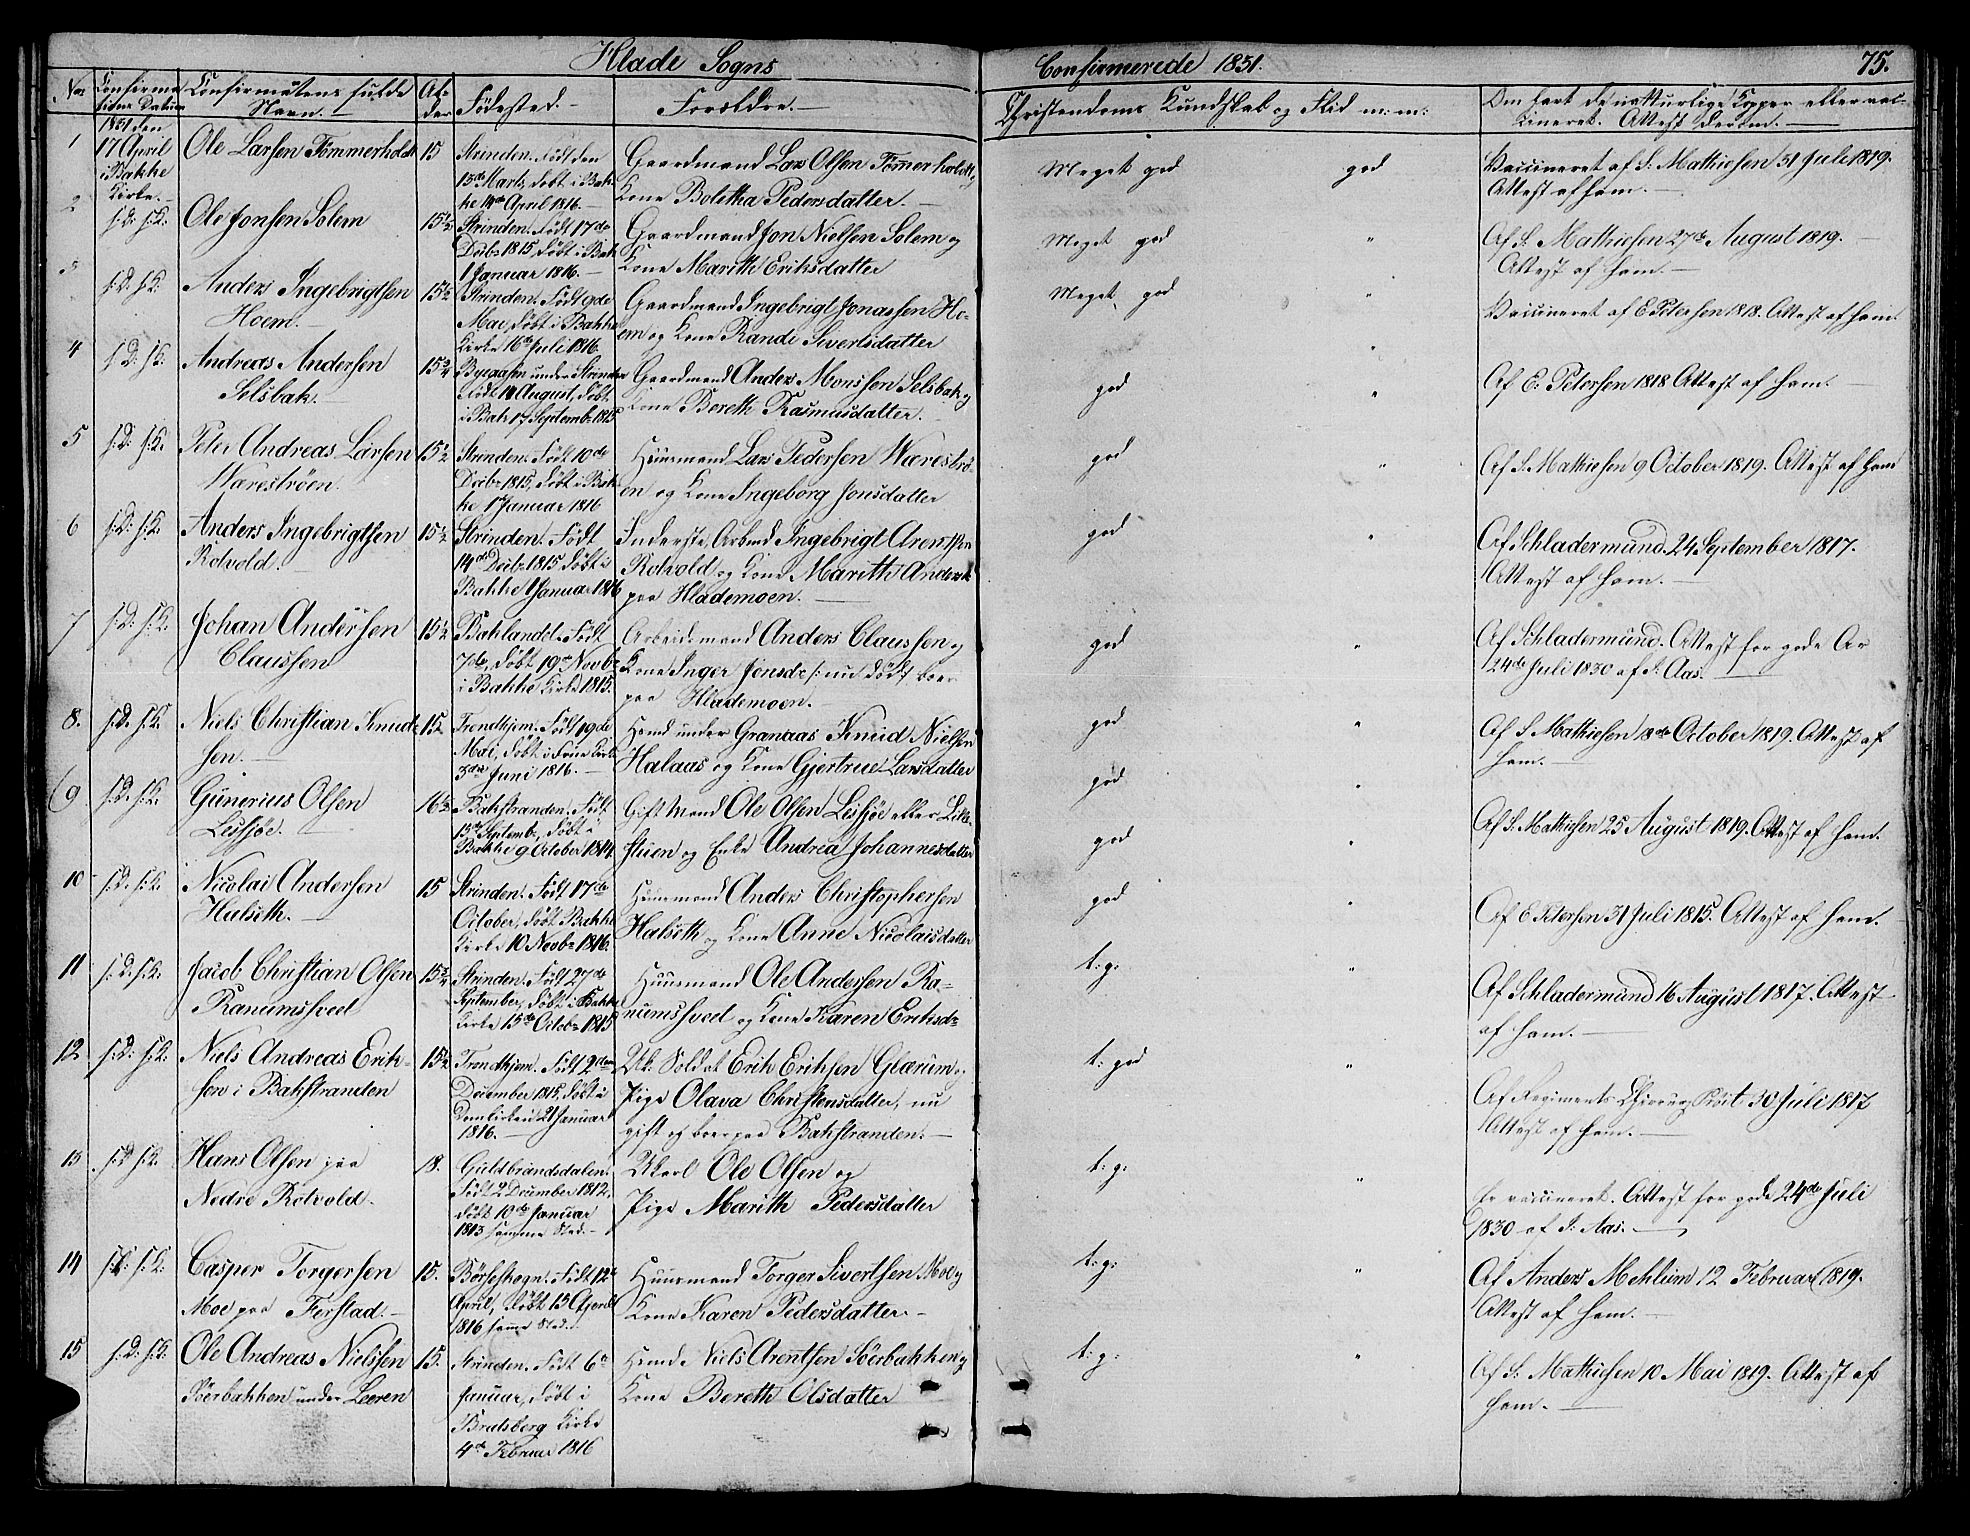 Hlade Sogns
Confirmerede 1831.
75.
No
Confirma
tions Datum
Confirmatens fulde
Navn.
Al-
der
Fødested.
Forældre.
Christendoms Kundskab og Flid m: m:
Om havt de naturlige Kopper eller vac-
cineret. Attest derom.
1
1831 den
17 April
i Bakke
Kirke.
Ole Larsen Tømmerholdt
15
Strinden. Født den
15de Marts, døbt i Bak-
ke 14de April 1816.
Gaardmand Lars Olsen Tømerholdt og
Kone Boletha Pedersdatter.
Meget god
god
Vaccineret af S. Mathiesen 31 Juli 1819.
Attest af ham.
2
s: D: s: K:
Ole Jonsen Solem
15 1/2
Strinden. Født 17de
Decbr 1815, døbt i Bak
1 Januar 1816.
Gaardmand Jon Nielsen Solem og
Kone Marith Eriksdatter
Meget god
"
Af S. Mathiesen 27de August 1819.
Attest af ham.
3
s: D: s: K:
Anders Ingebrigtsen
Hoem.
15 1/2
Strinden. Født 9de
Mai, døbt i Bakke
Kirke 16de Juli 1816.
Gaardmand Ingebrigt Jonassen Ho-
em og Kone Randi Sivertsdatter
Meget god
"
Vaccineret af E. Petersen 1818. Attest af ham.
4
s: D: s: K:
Andreas Andersen
Selsbak.
15 3/4
Byeaasen under Strinden
Født 14 August, døbt
i Bak 17 Septembr 1815
Gaardmand Anders Monssen Selsbak og
Kone Bereth Rasmusdatter.
god
"
Af E. Petersen 1818 Attest af ham.
5
s: D: s: K:
Peter Andreas Larsen
Wærestrøen.
15 1/2
Strinden. Født 10de
Decbr 1815, døbt i Bak-
ke 1 Januar 1816
Huusmand Lars Pedersen Wærestrø-
en og Kone Ingeborg Jonsdatter
god
"
Af S. Mathiesen 9 October 1819. Attest af ham
6
s: D: s: K:
Anders Ingebrigtsen
Rotvold.
15 1/2
Strinden. Født
14de Decbr 1815 døbt i
Bakke 1 Januar 1816
Inderste, Arbmd Ingebrigt Arentsen
Rotvold og Kone Marith Andersdr
paa Hlademoen.
god
"
Af Schladermund 24 September 1817.
Attest af ham.
7
s: D: s: K:
Johan Andersen
Claussen
15 1/2
Baklandet. Født
7de, døbt 19de Novbr
i Bakke Kirke 1815.
Arbeidsmand Anders Claussen og
Kone Inger Jonsdr /: nu død, boer
paa Hlademoen.
god
"
Af Schladermund. Attest for gode Ar
24de Juli 1830 af S: Aas.
8.
s: D. s: K.
Niels Christian Knud-
sen.
15
Trondhjem. Født 19de
Mai, døbt i Frue Kirke
3die Juni 1816.
Hmd under Granaas Knud Nielsen
Halaas og Kone Gjertrue Larsdatter
god
"
Af S Mathiesen 18de October 1819. Attest af
ham.
9
s: D. s: K.
Gunerius Olsen
Lessjøe.
16 1/2
Bakstranden. Født
15de Septembr, døbt i
Bakke 9 October 1814.
Gift Mand Ole Olsen Lessjøe eller Lille-
stuen og Enke Andrea Johannesdatter
god
"
Af S. Mathiesen 25 August 1819. Attest af ham.
10
s: D. s: K.
Nicolai Andersen
Halseth.
15
Strinden. Født 17de
October, døbt i Bakke
Kirke 10 Novbr 1816.
Huusmand Anders Christophersen
Halseth og Kone Anne Nicolaisdatter
god
"
Af E Petersen 31 Juli 1815. Attest af ham.
11
s: D. s: K.
Jacob Christian Olsen
Ranumsveet
15 3/4
Strinden. Født 27de
September, døbt i Bakke
Kirke 15de Octobr 1815
Huusmand Ole Anderssen Ra-
numsveet og Kone Karen Eriksdr
t: g:
"
Af Schladermund 16 August 1817. Attest
af ham.
12
s: D: s: K:
Niels Andreas Erik-
sen i Bakstranden
15 1/2
Trondhjem. Født 2den
December 1815, døbt i
Domkirken 21 Januar
1816.
Uk: Soldat Erik Eriksen Glærum og
Pige Olava Christensdatter, nu
gift og boer paa Bakstranden.
t: god
"
Af Regiments Chirurg Röit 30 Juli 1817
Attest af ham.
13
s: D s: K.
Hans Olsen paa
Nedre Rotvold.
18.
Guldbrandsdalen.
Født 2 December 1812,
døbt 10de Januar
1813 samme Sted.
Ukarl Ole Olsen og
Pige Marith Pedersdatter
t: g:
"
Er vaccineret. Attest for gode 24de Juli
1830 af S: Aas.
14
s: D: s: K:
Casper Torgersen
Moe paa Ferstad.
15.
Børseskogn. Født 12te
April, døbt 15 April
1816 samme Sted.
Huusmand Torger Sivertsen Moe og
Kone Karen Pedersdatter.
t: g:
"
Af Anders Mehlum 12 Februar 1819.
Attest af ham.
15
s: D: s: K:
Ole Andreas Nielssen
Søerbakken under Leeren
15.
Strinden. Født 6te
Januar, døbt i
Bratsberg Kirke
4de Februar 1816
Hmd Niels Arentsen Söerbakken og
Kone Bereth Olsdatter
t: g:
"
Af S. Mathiesen 10 Mai 1819. Attest af
ham.